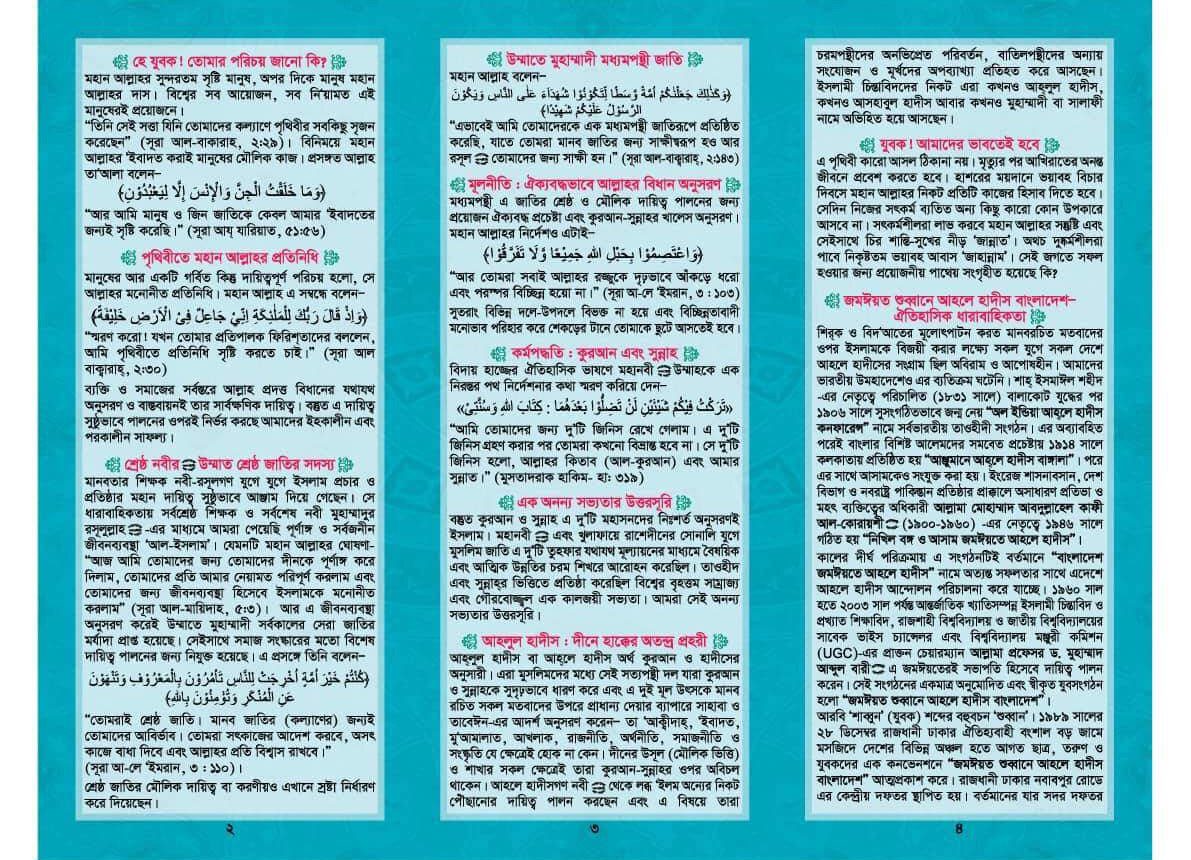 হে যুবক! তোমার পরিচয় জানো কি?
মহান আল্লাহর সুন্দরতম সৃষ্টি মানুষ, অপর দিকে মানুষ মহান
আল্লাহর দাস। বিশ্বের সব আয়োজন, সব নি'য়ামত এই
মানুষেরই প্রয়োজনে।
“তিনি সেই সত্তা যিনি তোমাদের কল্যাণে পৃথিবীর সবকিছু সৃজন
করেছেন” (সূরা আল-বাকারাহ, ২:২৯)। বিনিময়ে মহান
আল্লাহর ‘ইবাদত করাই মানুষের মৌলিক কাজ। প্রসঙ্গত আল্লাহ
তা'আলা বলেন–
﴿وَمَا خَلَقْتُ الْجِنَّ وَالْإِنْسَ إِلَّا لِيَعْبُدُوْنِ﴾
“আর আমি মানুষ ও জিন জাতিকে কেবল আমার ‘ইবাদতের
জন্যই সৃষ্টি করেছি।” (সূরা আয্ যারিয়াত, ৫১:৫৬)
পৃথিবীতে মহান আল্লাহর প্রতিনিধি
মানুষের আর একটি গর্বিত কিন্তু দায়িত্বপূর্ণ পরিচয় হলো, সে
আল্লাহর মনোনীত প্রতিনিধি। মহান আল্লাহ এ সম্বন্ধে বলেন–
﴿وَإِذْ قَالَ رَبُّكَ لِلْمَلٰئِكَةِ إِنِّيْ جَاعِلٌ فِي الْأَرْضِ خَلِيْفَةً﴾
“স্মরণ করো! যখন তোমার প্রতিপালক ফিরিশ্‌তাদের বললেন,
আমি পৃথিবীতে প্রতিনিধি সৃষ্টি করতে চাই।” (সূরা আল
বাক্বারাহ্, ২:৩০)
ব্যক্তি ও সমাজের সর্বস্তরে আল্লাহ প্রদত্ত বিধানের যথাযথ
অনুসরণ ও বাস্তবায়নই তার সার্বক্ষণিক দায়িত্ব। বস্তুত এ দায়িত্ব
সুষ্ঠুভাবে পালনের ওপরই নির্ভর করছে আমাদের ইহকালীন এবং
পরকালীন সাফল্য।
শ্রেষ্ঠ নবীর ﷺ উম্মাত শ্রেষ্ঠ জাতির সদস্য
মানবতার শিক্ষক নবী-রসূলগণ যুগে যুগে ইসলাম প্রচার ও
প্রতিষ্ঠার মহান দায়িত্ব সুষ্ঠুভাবে আঞ্জাম দিয়ে গেছেন। সে
ধারাবাহিকতায় সর্বশ্রেষ্ঠ শিক্ষক ও সর্বশেষ নবী মুহাম্মাদুর
রসূলুল্লাহ ﷺ -এর মাধ্যমে আমরা পেয়েছি পূর্ণাঙ্গ ও সর্বজনীন
জীবনব্যবস্থা ‘আল-ইসলাম’। যেমনটি মহান আল্লাহর ঘোষণা-
“আজ আমি তোমাদের জন্য তোমাদের দীনকে পূর্ণাঙ্গ করে
দিলাম, তোমাদের প্রতি আমার নেয়ামত পরিপূর্ণ করলাম এবং
তোমাদের জন্য জীবনব্যবস্থা হিসেবে ইসলামকে মনোনীত
করলাম” (সূরা আল-মায়িদাহ, ৫:৩)। আর এ জীবনব্যবস্থা
অনুসরণ করেই উম্মাতে মুহাম্মাদী সর্বকালের সেরা জাতির
মর্যাদা প্রাপ্ত হয়েছে। সেইসাথে সমাজ সংস্কারের মতো বিশেষ
দায়িত্ব পালনের জন্য নিযুক্ত হয়েছে। এ প্রসঙ্গে তিনি বলেন–
﴿كُنْتُمْ خَيْرَ أُمَّةٍ أُخْرِجَتْ لِلنَّاسِ تَأْمُرُوْنَ بِالْمَعْرُوْفِ وَتَنْهَوْنَ
عَنِ الْمُنْكَرِ وَتُؤْمِنُوْنَ بِاللهِ﴾
“তোমরাই শ্রেষ্ঠ জাতি। মানব জাতির (কল্যাণের) জন্যই
তোমাদের আবির্ভাব। তোমরা সৎকাজের আদেশ করবে, অসৎ
কাজে বাধা দিবে এবং আল্লাহর প্রতি বিশ্বাস রাখবে।”
(সূরা আ-লে ‘ইমরান, ৩ : ১১০)।
শ্রেষ্ঠ জাতির মৌলিক দায়িত্ব বা করণীয়ও এখানে স্রষ্টা নির্ধারণ
করে দিয়েছেন।
২
উম্মাতে মুহাম্মাদী মধ্যমপন্থী জাতি
মহান আল্লাহ বলেন–
﴿وَكَذٰلِكَ جَعَلْنٰكُمْ أُمَّةً وَّسَطًا لِّتَكُوْنُوْا شُهَدَآءَ عَلَى النَّاسِ وَيَكُوْنَ
الرَّسُوْلُ عَلَيْكُمْ شَهِيْدًا﴾
“এভাবেই আমি তোমাদেরকে এক মধ্যমপন্থী জাতিরূপে প্রতিষ্ঠিত
করেছি, যাতে তোমরা মানব জাতির জন্য সাক্ষীস্বরূপ হও আর
রসূল ﷺ তোমাদের জন্য সাক্ষী হন।” (সূরা আল-বাক্বারাহ্, ২:১৪৩)
মূলনীতি : ঐক্যবদ্ধভাবে আল্লাহর বিধান অনুসরণ
মধ্যমপন্থী এ জাতির শ্রেষ্ঠ ও মৌলিক দায়িত্ব পালনের জন্য
প্রয়োজন ঐক্যবদ্ধ প্রচেষ্টা এবং কুরআন-সুন্নাহর খালেস অনুসরণ।
মহান আল্লাহর নির্দেশও এটাই–
﴿وَاعْتَصِمُوْا بِحَبْلِ اللهِ جَمِيْعًا وَّلَا تَفَرَّقُوْا﴾
“আর তোমরা সবাই আল্লাহর রজ্জুকে দৃঢ়ভাবে আঁকড়ে ধরো
এবং পরস্পর বিচ্ছিন্ন হয়ো না।” (সূরা আ-লে ‘ইমরান, ৩ : ১০৩)
সুতরাং বিভিন্ন দলে-উপদলে বিভক্ত না হয়ে এবং বিচ্ছিন্নতাবাদী
মনোভাব পরিহার করে শেকড়ের টানে তোমাকে ছুটে আসতেই হবে।
কর্মপদ্ধতি : কুরআন এবং সুন্নাহ
বিদায় হাজ্জের ঐতিহাসিক ভাষণে মহানবী ﷺ উম্মাহকে এক
নিরন্তর পথ নির্দেশনার কথা স্মরণ করিয়ে দেন–
«تَرَكْتُ فِيْكُمْ شَيْئَيْنِ لَنْ تَضِلُّوْا بَعْدَهُمَا : كِتَابَ اللهِ وَسُنَّتِيْ»
“আমি তোমাদের জন্য দু'টি জিনিস রেখে গেলাম। এ দু'টি
জিনিস গ্রহণ করার পর তোমরা কখনো বিভ্রান্ত হবে না। সে দু'টি
জিনিস হলো, আল্লাহর কিতাব (আল-কুরআন) এবং আমার
সুন্নাত।” (মুসতাদরাক হাকিম- হা: ৩১৯)
এক অনন্য সভ্যতার উত্তরসূরি
বস্তুত কুরআন ও সুন্নাহ এ দু'টি মহাসনদের নিঃশর্ত অনুসরণই
ইসলাম। মহানবী ﷺ এবং খুলাফায়ে রাশেদীনের সোনালি যুগে
মুসলিম জাতি এ দু'টি তুহফার যথাযথ মূল্যায়নের মাধ্যমে বৈষয়িক
এবং আত্মিক উন্নতির চরম শিখরে আরোহন করেছিল। তাওহীদ
এবং সুন্নাহ্‌র ভিত্তিতে প্রতিষ্ঠা করেছিল বিশ্বের বৃহত্তম সাম্রাজ্য
এবং গৌরবোজ্জ্বল এক কালজয়ী সভ্যতা। আমরা সেই অনন্য
সভ্যতার উত্তরসূরি।
আহলুল হাদীস : দীনে হাক্কের অতন্দ্র প্রহরী
আহ্‌লুল হাদীস বা আহ্‌লে হাদীস অর্থ কুরআন ও হাদীসের
অনুসারী। এরা মুসলিমদের মধ্যে সেই সত্যপন্থী দল যারা কুরআন
ও সুন্নাহকে সুদৃঢ়ভাবে ধারণ করে এবং এ দুই মূল উৎসকে মানব
রচিত সকল মতবাদের উপরে প্রাধান্য দেয়ার ব্যাপারে সাহাবা ও
তাবেঈন-এর আদর্শ অনুসরণ করেন– তা ‘আক্বীদাহ্, ‘ইবাদত,
মু'আমালাত, আখলাক, রাজনীতি, অর্থনীতি, সমাজনীতি ও
সংস্কৃতি যে ক্ষেত্রেই হোক না কেন। দীনের উসূল (মৌলিক ভিত্তি)
ও শাখার সকল ক্ষেত্রেই তারা কুরআন-সুন্নাহর ওপর অবিচল
থাকেন। আহলে হাদীসগণ নবী ﷺ থেকে লব্ধ ‘ইলম অন্যের নিকট
পৌঁছানোর দায়িত্ব পালন করছেন এবং এ বিষয়ে তারা
৩
চরমপন্থীদের অনভিপ্রেত পরিবর্তন, বাতিলপন্থীদের অন্যায়
সংযোজন ও মূর্খদের অপব্যাখ্যা প্রতিহত করে আসছেন।
ইসলামী চিন্তাবিদদের নিকট এরা কখনও আহলুল হাদীস,
কখনও আসহাবুল হাদীস আবার কখনও মুহাম্মাদী বা সালাফী
নামে অভিহিত হয়ে আসছেন।
যুবক! আমাদের ভাবতেই হবে
এ পৃথিবী কারো আসল ঠিকানা নয়। মৃত্যুর পর আখিরাতের অনন্ত
জীবনে প্রবেশ করতে হবে। হাশরের ময়দানে ভয়াবহ বিচার
দিবসে মহান আল্লাহর নিকট প্রতিটি কাজের হিসাব দিতে হবে।
সেদিন নিজের সৎকর্ম ব্যতিত অন্য কিছু কারো কোন উপকারে
আসবে না। সৎকর্মশীলরা লাভ করবে মহান আল্লাহর সন্তুষ্টি এবং
সেইসাথে চির শান্তি-সুখের নীড় ‘জান্নাত’। অথচ দুষ্কর্মশীলরা
পাবে নিকৃষ্টতম ভয়াবহ আবাস ‘জাহান্নাম’। সেই জগতে সফল
হওয়ার জন্য প্রয়োজনীয় পাথেয় সংগৃহীত হয়েছে কি?
জমঈয়ত শুব্বানে আহলে হাদীস বাংলাদেশ–
ঐতিহাসিক ধারাবাহিকতা
শির্‌ক ও বিদ'আতের মূলোৎপাটন করত মানবরচিত মতবাদের
ওপর ইসলামকে বিজয়ী করার লক্ষ্যে সকল যুগে সকল দেশে
আহলে হাদীসের সংগ্রাম ছিল অবিরাম ও আপোষহীন। আমাদের
ভারতীয় উমহাদেশেও এর ব্যতিক্রম ঘটেনি। শাহ্ ইসমাঈল শহীদ
-এর নেতৃত্বে পরিচালিত (১৮৩১ সালে) বালাকোট যুদ্ধের পর
১৯০৬ সালে সুসংগঠিতভাবে জন্ম নেয় “অল ইন্ডিয়া আহ্‌লে হাদীস
কনফারেন্স” নামে সর্বভারতীয় তাওহীদী সংগঠন। এর অব্যাবহিত
পরেই বাংলার বিশিষ্ট আলেমদের সমবেত প্রচেষ্টায় ১৯১৪ সালে
কলকাতায় প্রতিষ্ঠিত হয় “আঞ্জুমানে আহ্‌লে হাদীস বাঙ্গালা”। পরে
এর সাথে আসামকেও সংযুক্ত করা হয়। ইংরেজ শাসনাবসান, দেশ
বিভাগ ও নবরাষ্ট্র পাকিস্তান প্রতিষ্ঠার প্রাক্কালে অসাধারণ প্রতিভা ও
মহৎ ব্যক্তিত্বের অধিকারী আল্লামা মোহাম্মাদ আবদুল্লাহেল কাফী
আল-কোরায়শী (১৯০০-১৯৬০) -এর নেতৃত্বে ১৯৪৬ সালে
গঠিত হয় “নিখিল বঙ্গ ও আসাম জমঈয়তে আহলে হাদীস”।
কালের দীর্ঘ পরিক্রমায় এ সংগঠনটিই বর্তমানে “বাংলাদেশ
জমঈয়তে আহলে হাদীস” নামে অত্যন্ত সফলতার সাথে এদেশে
আহলে হাদীস আন্দোলন পরিচালনা করে যাচ্ছে। ১৯৬০ সাল
হতে ২০০৩ সাল পর্যন্ত আন্তর্জাতিক খ্যাতিসম্পন্ন ইসলামী চিন্তাবিদ ও
প্রখ্যাত শিক্ষাবিদ, রাজশাহী বিশ্ববিদ্যালয় ও জাতীয় বিশ্ববিদ্যালয়ের
সাবেক ভাইস চ্যান্সেলর এবং বিশ্ববিদ্যালয় মঞ্জুরী কমিশন
(UGC)-এর প্রাক্তন চেয়ারম্যান আল্লামা প্রফেসর ড. মুহাম্মাদ
আব্দুল বারী এ জমঈয়তেরই সভাপতি হিসেবে দায়িত্ব পালন
করেন। সেই সংগঠনের একমাত্র অনুমোদিত এবং স্বীকৃত যুবসংগঠন
হলো “জমঈয়ত শুব্বানে আহলে হাদীস বাংলাদেশ”।
আরবি ‘শাব্বুন’ (যুবক) শব্দের বহুবচন ‘শুব্বান’। ১৯৮৯ সালের
২৮ ডিসেম্বর রাজধানী ঢাকার ঐতিহ্যবাহী বংশাল বড় জামে
মসজিদে দেশের বিভিন্ন অঞ্চল হতে আগত ছাত্র, তরুণ ও
যুবকদের এক কনভেনশনে “জমঈয়ত শুব্বানে আহলে হাদীস
বাংলাদেশ” আত্মপ্রকাশ করে। রাজধানী ঢাকার নবাবপুর রোডে
এর কেন্দ্রীয় দফতর স্থাপিত হয়। বর্তমানের যার সদর দফতর
৪